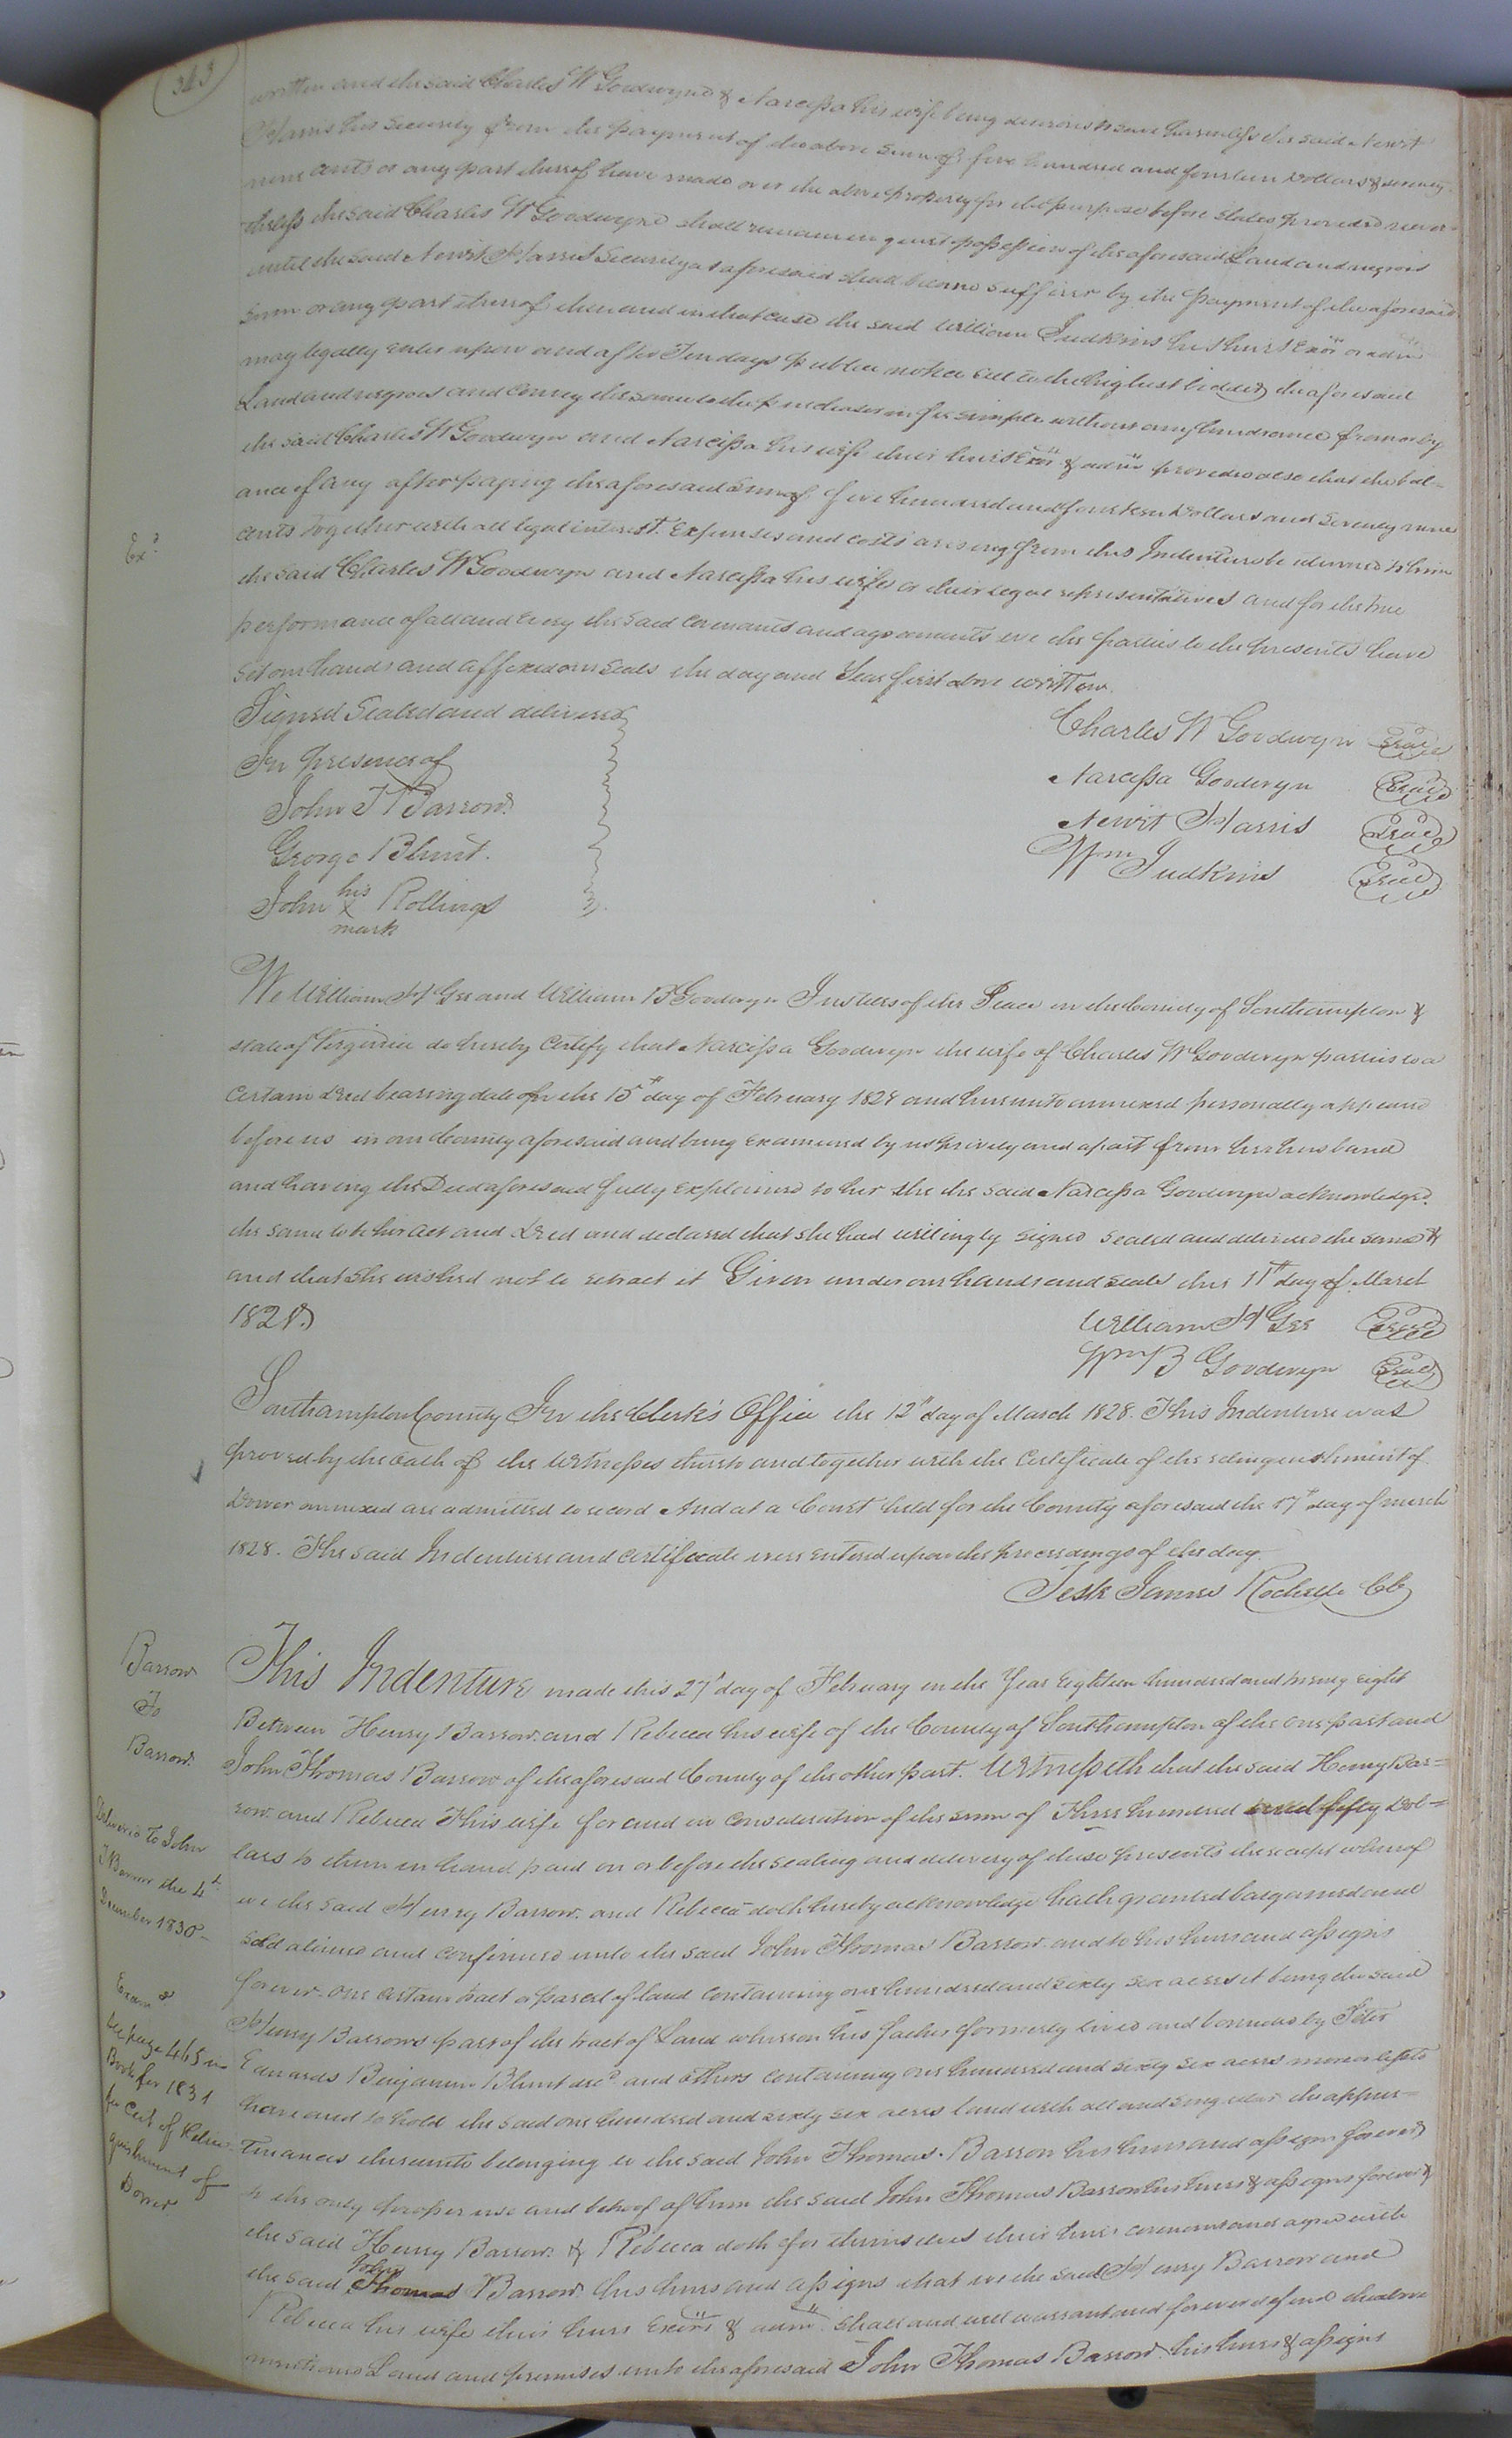 343
written and the said Charles W Goodwyn & Narcissa his wife being desirous to save harmless the said Newit
Harris his Security from the payment of the above sum of five hundred and fourteen Dollars & seventy
nine cents or any part thereof have made over the above property for the purpose before stated provided never-
theless the said Charles W Goodwyn shall remain in quiet possession of the aforesaid Land and negroes
until the said Newit Harris Security as aforesaid shall become sufferer by the payment of the aforesaid
sum or any part thereof then and in that case the said William Judkins his heirs Exors or adms
may legally enter upon and after Ten days publick notice sell to the highest bidder the aforesaid
Land and negroes and convey the same to the purchaser in fee simple without any hindrance from or by
the said Charles W Goodwyn and Narcissa his wife their heirs Exors & adms provided also that the bal-
ance if any after paying the aforesaid sum of five hundred and fourteen Dollars and seventy nine
cents together with all legal interest Expenses and costs arising from this Indenture be returned to him
Exd
the said Charles W Goodwyn and Narcissa his wife or their legal representatives and for the true
performance of all and every the said covenants and agreements we the parties to the presents have
set our hands and affixed our seals the day and Year first above written.
Signed Sealed and delivered
In presence of
John T Barrow
George Blunt.
John his X mark Rollings
Charles W Goodwyn Seal
Narcissa Goodwyn Seal
Newit Harris Seal
Wm Judkins Seal
We William H Gee and William B Goodwyn Justices of the Peace in the County of Southampton &
state of Virginia do hereby Certify that Narcissa Goodwyn the wife of Charles W Goodwyn parties to a
certain deed bearing date on the 15th day of February 1828 and hereunto annexed personally appeared
before us in our County aforesaid and being examined by us privily and apart from her husband
and having the Deed aforesaid fully explained to her she the said Narcissa Goodwyn acknowledged
the same to be her act and deed and declared that she had willingly signed sealed and delivered the same &
and that she wished not to retract it Given under our hands and seals this 11th day of March
1828.
William H Gee Seal
Wm B Goodwyn Seal
Southampton County In the Clerk's Office the 12th day of March 1828. This Indenture was
proved by the oath of the witnesses thereto and together with the certificate of the relinquishment of
Dower annexed are admitted to record And at a Court held for the County aforesaid the 17th day of march
1828. The said Indenture and certificate were entered upon the proceedings of the day.
Teste James Rochelle CC
Barrow
To
Barrow.
Delivered to John
T Barrow the 4th
December 1830
Examd
See page 465 in
Book for 1831
for Cert of Relin-
quishment of
Dower
This Indenture made this 27th day of February in the Year Eighteen hundred and twenty eight
Between Henry Barrow and Rebecca his wife of the County of Southampton of the one part and
John Thomas Barrow of the aforesaid County of the other part. Witnesseth that the said Henry Bar-
row and Rebecca his wife for and in consideration of the sum of Three hundred and fifty Dol-
lars to them in hand paid on or before the sealing and delivery of these presents the receipt whereof
we the said Henry Barrow and Rebecca doth hereby acknowledge hath granted bargained and
sold aliened and confirmed unto the said John Thomas Barrow and to his heirs and assigns
forever one certain tract or parcel of land containing one hundred and sixty six acres it being the said
Henry Barrows part of the tract of Land whereon his father formerly lived and bounded by Peter
Edwards Benjamin Blunt decd and others containing one hundred and sixty six acres more or less to
have and to hold the said one hundred and sixty six acres land with all and singular the appur-
tenances thereunto belonging to the said John Thomas Barrow his heirs and assigns forever
to the only proper use and behoof of him the said John Thomas Barrow his heirs & assigns forever &
the said Henry Barrow & Rebecca doth for themselves their heirs covenant and agree with
the said John Thomas Barrow his heirs and assigns that we the said Henry Barrow and
Rebecca his wife their heirs Exors & adms shall and will warrant and forever defend the above
mentioned Land and premises unto the aforesaid John Thomas Barrow his heirs & assigns